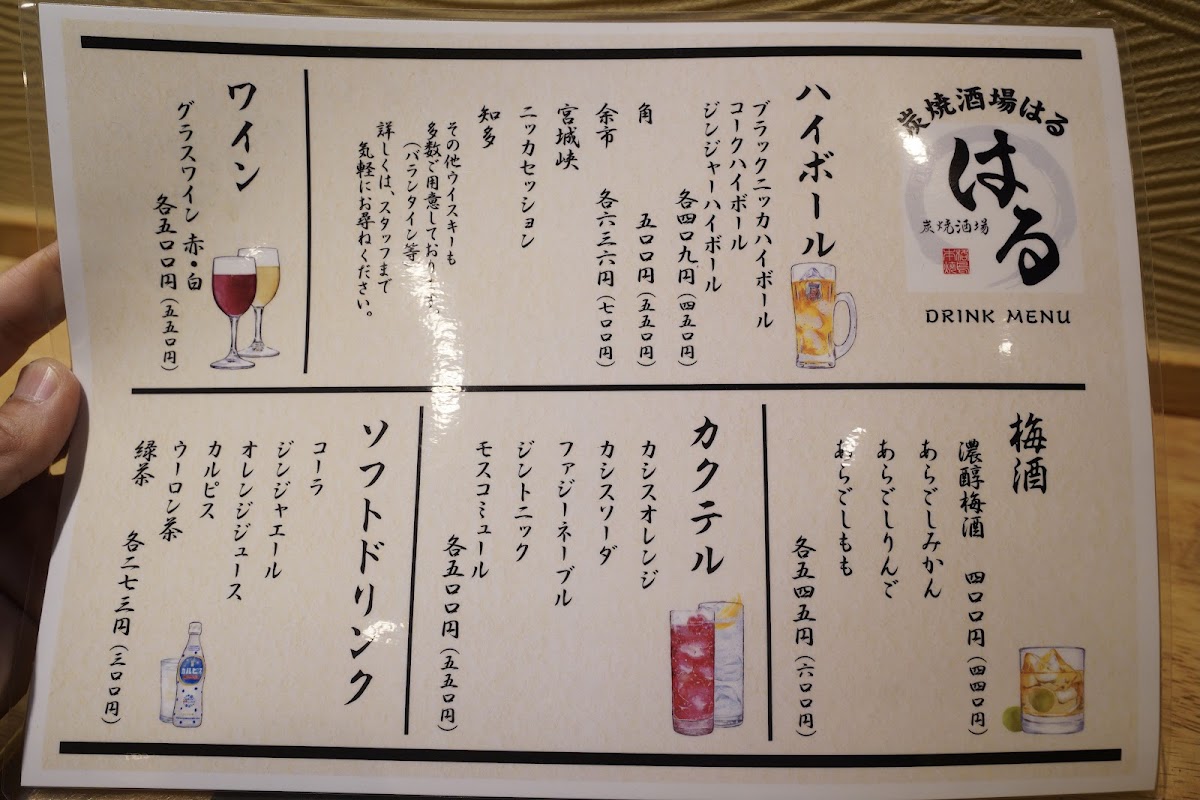 炭焼酒場はる
はる
炭焼酒場
DRINK MENU
ハイボール
ブラックニッカハイボール
コークハイボール
ジンジャーハイボール
各四〇九円(四五〇円)
角 五〇〇円(五五〇円)
余市 各六三六円(七〇〇円)
宮城峡
ニッカセッション
知多
その他ウイスキーも
多数ご用意しております。
(バランタイン等)
詳しくは、スタッフまで
気軽にお尋ねください。
ワイン
グラスワイン 赤・白
各五〇〇円(五五〇円)
梅酒
濃醇梅酒 四〇〇円(四四〇円)
あらごしみかん
あらごしりんご
あらごしもも
各五四五円(六〇〇円)
カクテル
カシスオレンジ
カシスソーダ
ファジーネーブル
ジントニック
モスコミュール
各五〇〇円(五五〇円)
ソフトドリンク
コーラ
ジンジャエール
オレンジジュース
カルピス
ウーロン茶
緑茶
各二七三円(三〇〇円)
カルピス